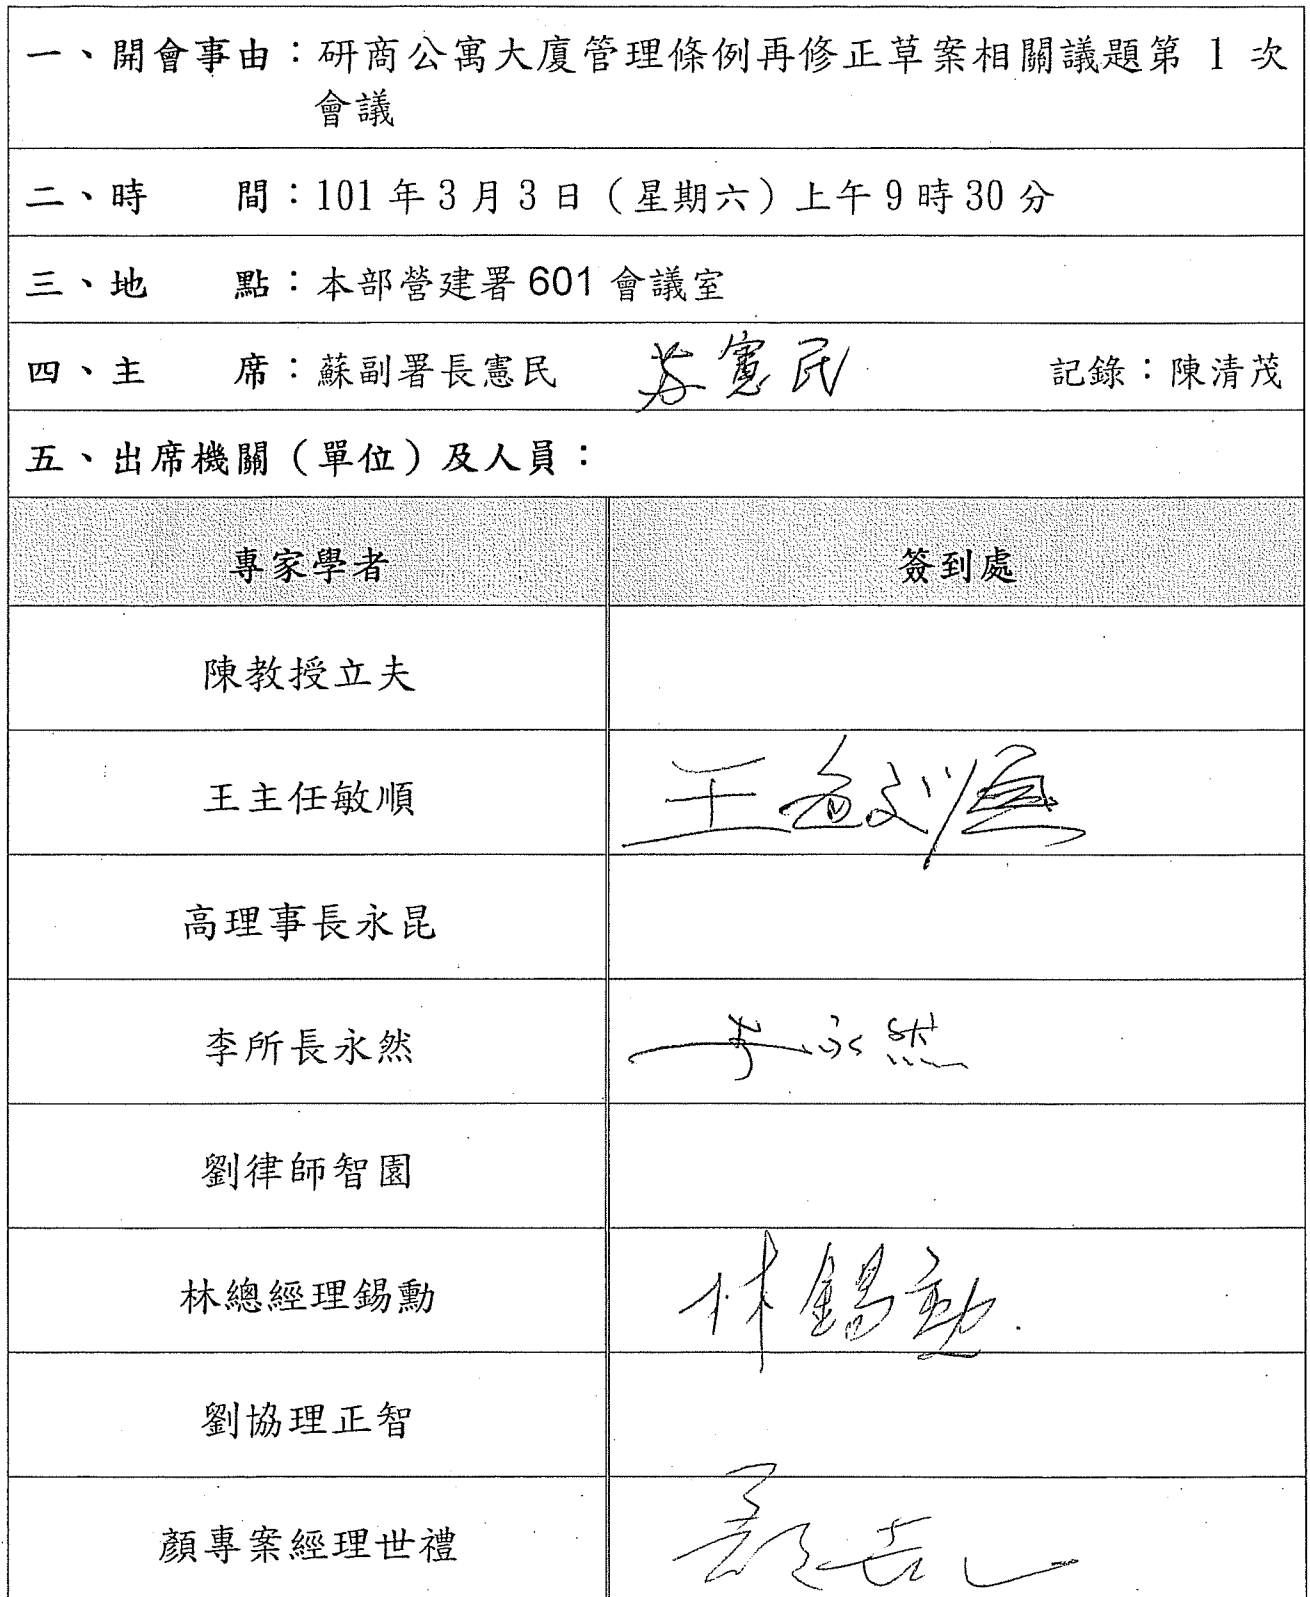 一、開會事由：研商公寓大廈管理條例再修正草案相關議題第 1 次
會議
二、時　　間：101 年 3 月 3 日（星期六）上午 9 時 30 分
三、地　　點：本部營建署 601 會議室
四、主　　席：蘇副署長憲民 苏憲民 記錄：陳清茂
五、出席機關（單位）及人員：
專家學者 簽到處
陳教授立夫
王主任敏順 王敏順
高理事長永昆
李所長永然 李永然
劉律師智園
林總經理錫勳 林錫勳
劉協理正智
顏專案經理世禮